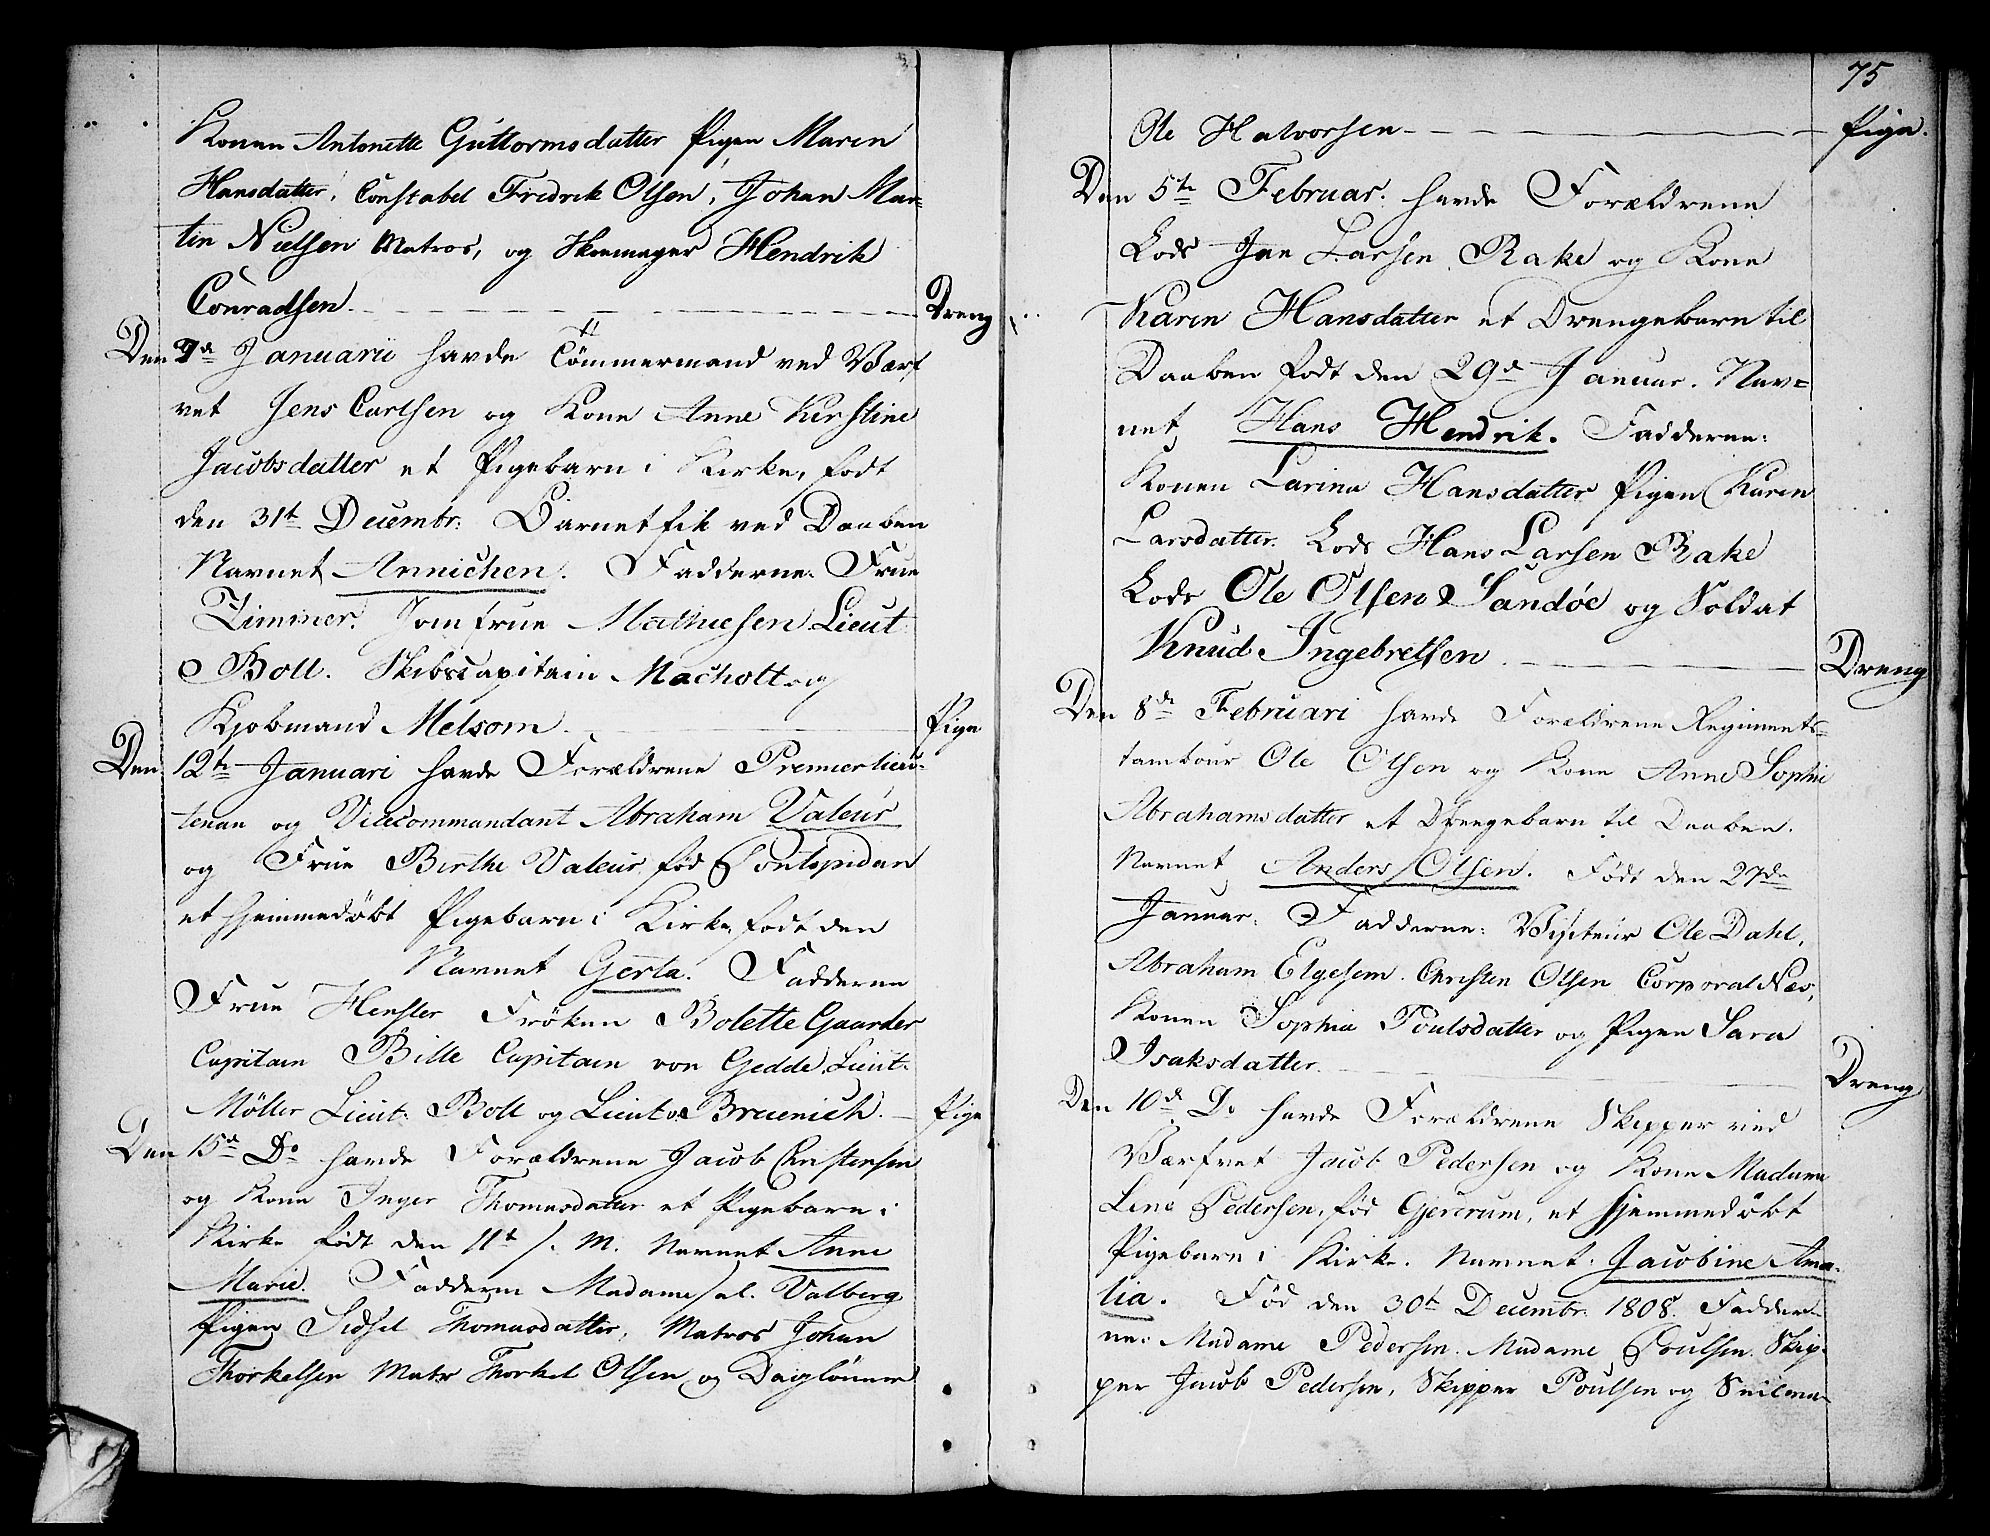 Konen Antonette Guttormsdatter Pigen Maren
Hansdatter, Constabel Fredrik Olsen, Johan Mar-
tin Nielsen Matros, og Skomager Hendrik
Conradsen. Dreng
Den 7de Januarii havde Tømmermand ved Værf
vet Jens Carlsen og Kone Anne Kirstine
Jacobsdatter et Pigebarn i Kirke, født
den 31te Decembr: Barnet fik ved Daaben
Navnet Annichen. Fadderne: Frue
Zimmer. Jomfrue Mathiesen Lieut
Boll. Skibscapitain Macholt og
Kjøbmand Melsom. Pige
Den 12te Januari havde Forældrene Premierlieu-
tenan og Vicecommandant Abraham Valeur
og Frue Birthe Valeur fød Pontopidan
et hjemmedøbt Pigebarn i Kirke født den
Navnet Gerta. Fadderne
Frue Hensler Frøken Bolette Gaarder
Capitain Bille Capitain von Gedde Lieut.
Møller Lieut: Boll og Lieut v. Bruenich. Pige
Den 15de Do havde Forældrene Jacob Christensen
og Kone Inger Thomasdatter et Pigebarn i
Kirke født den 11te s. M. Navnet Anne
Marie. Fadderne Madame sal. Valberg
Pigen Sidsel Thomasdatter, Matros Johan
Thorkelsen Matr Thorkel Olsen og Dagløner
75
Ole Halvorsen Pige.
Den 5te Februar. havde Forældrene
Lods Jan Larsen Rake og Kone
Karen Hansdatter et Drengebarn til
Daaben født den 29de Januar. Nav=
net Hans Hendrik. Fadderne:
Konen Larina Hansdatter Pigen Karen
Larsdatter. Lods Hans Larsen Rake
Lods Ole Olsen Sandøe og Soldat
Knud Ingebretsen. Dreng
Den 8de Februari havde Forældrene Regiments-
tambour Ole Olsen og Kone Anne Sophie
Abrahamsdatter et Drengebarn til Daaben.
Navnet Anders Olsen. Født den 27de
Januar. Fadderne: Visiteur Ole Dahl,
Abraham Elgesem. Christen Olsen Corporal Næs,
Konen Sophia Poulsdatter og Pigen Sara
Isaksdatter. Dreng
Den 10de Do havde Forældrene Skipper ved
Værfvet Jacob Pedersen og Kone Madame
Lene Pedersen, fød Gjercrum, et hjemmedøbt
Pigebarn i Kirke. Navnet: Jacobine Ama-
lia. Fød den 30te Decembr. 1808. Fadder-
ne: Madame Pedersen. Madame Poulsen. Skip-
per Jacob Pedersen, Skipper Poulsen og Seilma-